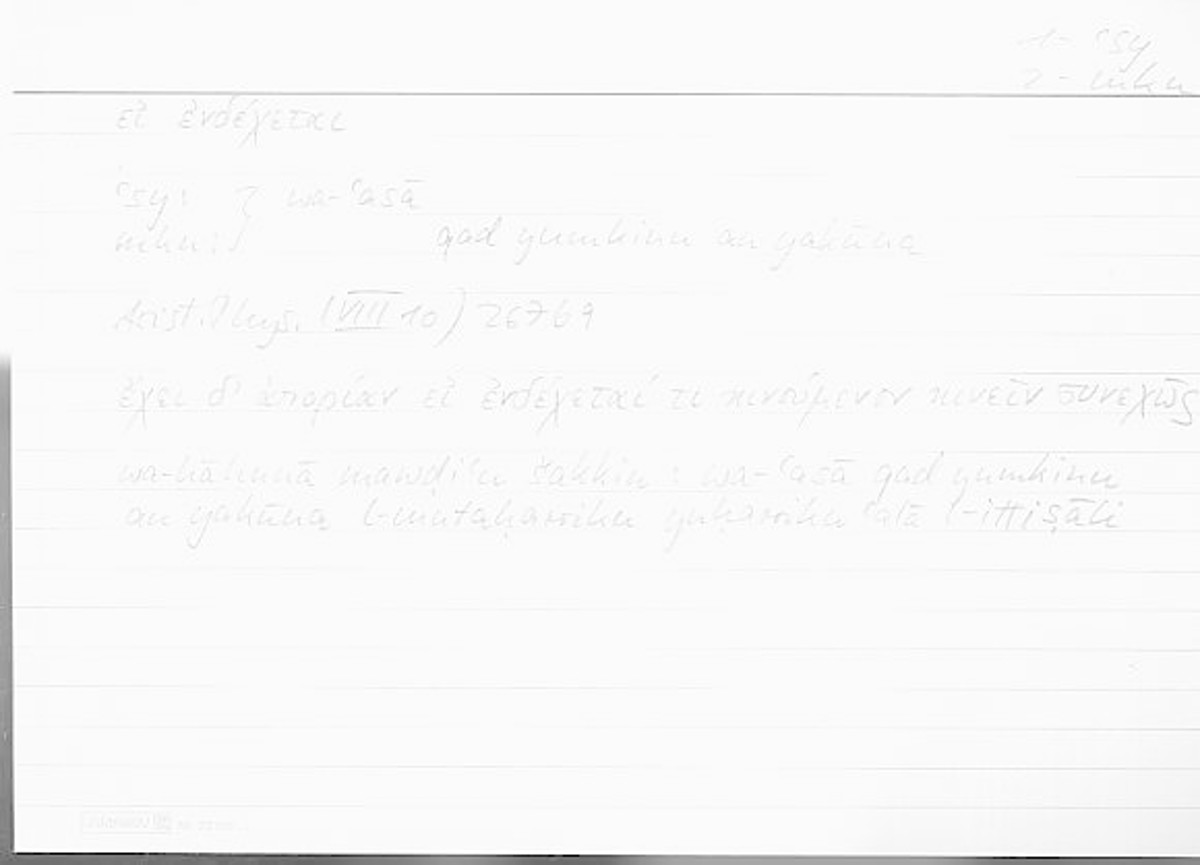 1- ʿsy
2- mkn
εἰ ἐνδέχεται
ʿsy: } wa-ʿasā
mkn: } qad yumkinu an yakūna
Arist. Phys. (VIII 10) 267b9
ἔχει δ' ἀπορίαν εἰ ἐνδέχεταί τι κινούμενον κινεῖν συνεχῶς
wa-hāhunā mawḍiʿu šakkin: wa-ʿasā qad yumkinu
an yakūna l-mutaḥarriku yuḥarriku ʿalā l-ittiṣāli